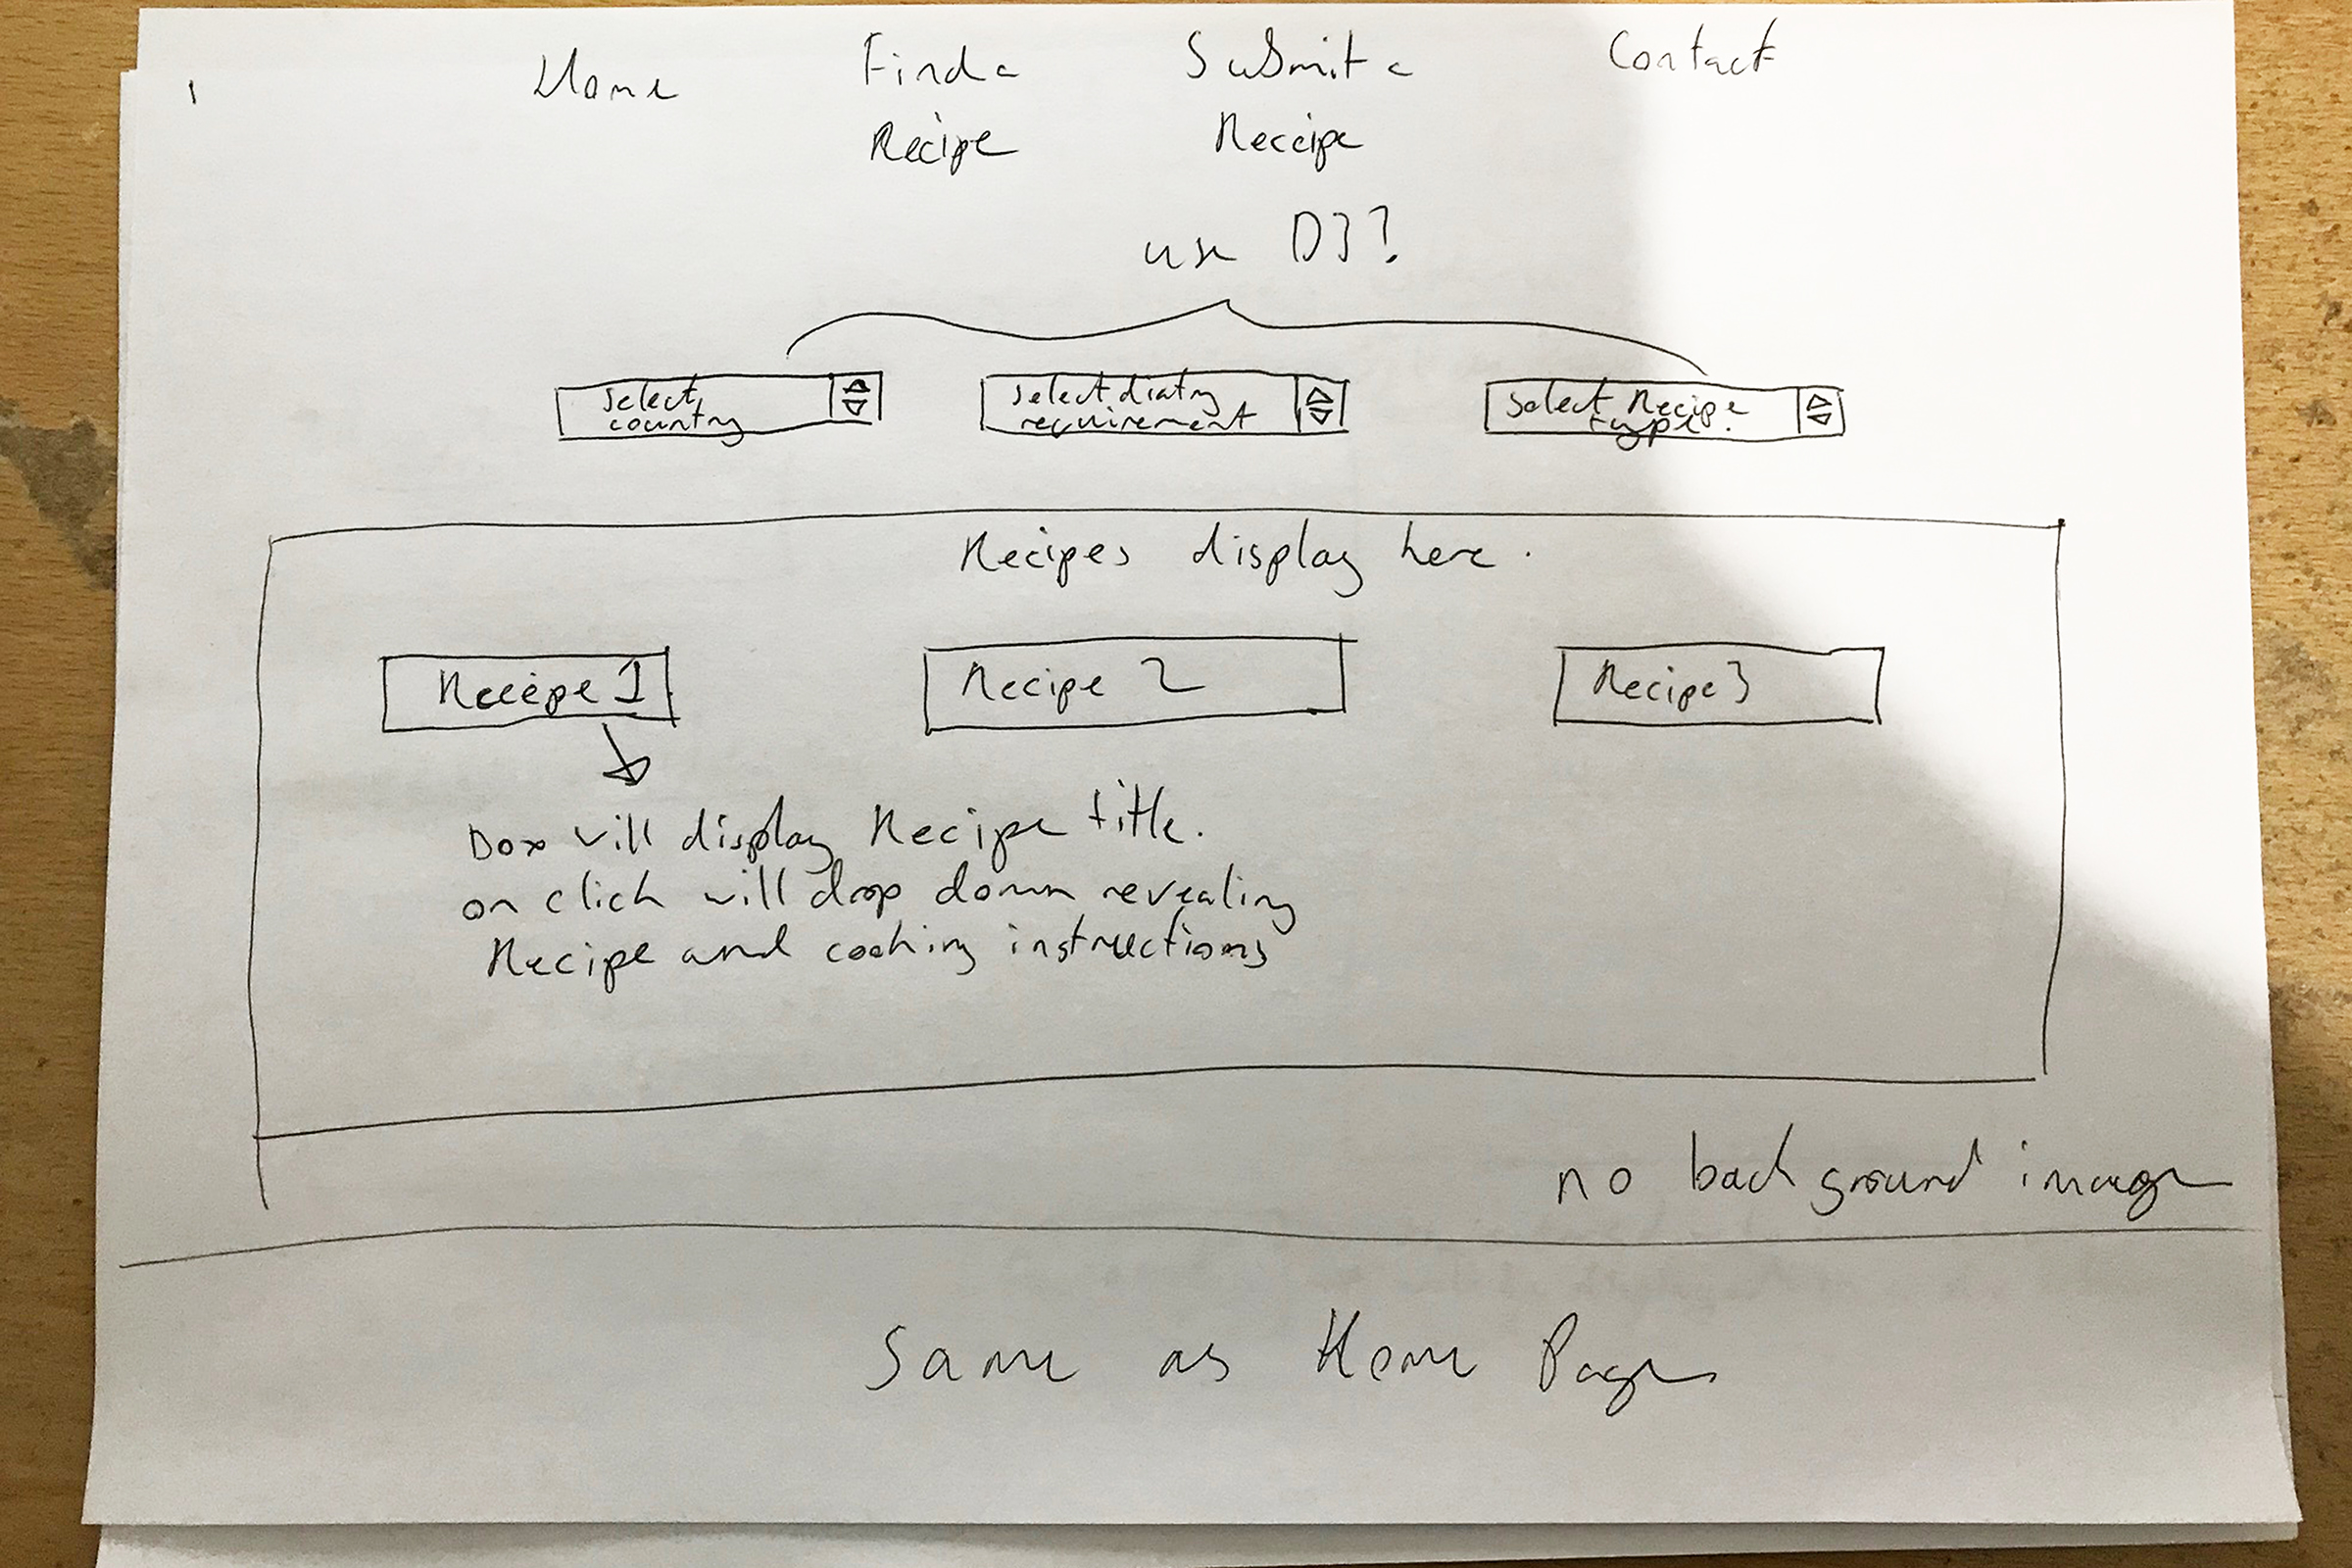 Home
Find a
Recipe
Submit a
Recipe
Contact
use D3?
Select
country
Select diatry
requirement
Select Recipe
type.
Recipes display here.
Recipe 1
Recipe 2
Recipe 3
Box will display Recipe title.
on click will drop down revealing
Recipe and cooking instructions
no background image
Same as Home Page